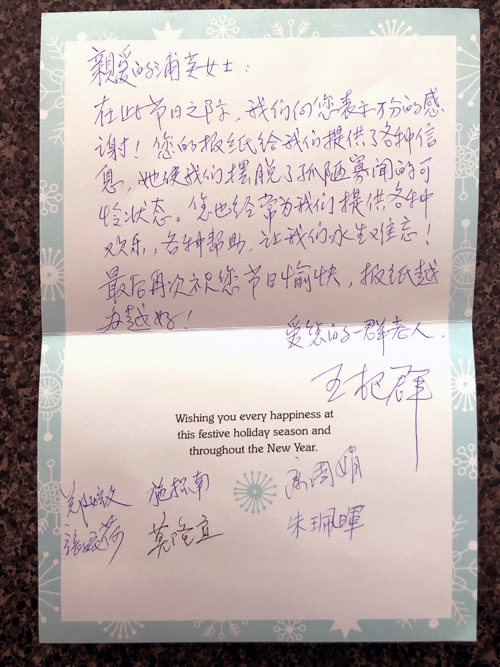 亲爱的浦英女士:
在此节日之际,我们向您表示万分的感
谢!您的报纸给我们提供了各种信
息,她使我们摆脱了孤陋寡闻的可
怜状态。您也经常为我们提供各种
欢乐,各种帮助,让我们永生难忘!
最后再次祝您节日愉快,报纸越
办越好!
爱您的一群老人.
王 群
Wishing you every happiness at
this festive holiday season and
throughout the New Year.
施振南
高周娟
莫隆宜
朱珮暉